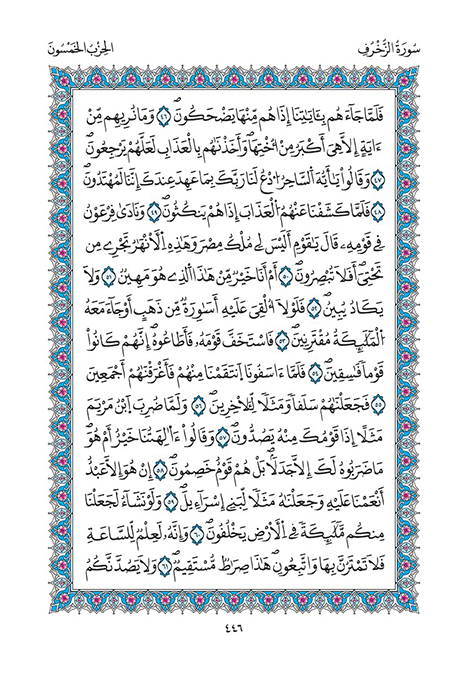 سُورَةُ الزُّخْرُفِ
الحِزْبُ الخَمْسُونَ
فَلَمَّا جَآءَهُم بِـَٔايَٰتِنَآ إِذَا هُم مِّنْهَا يَضْحَكُونَۖ ٤٦ وَمَا نُرِيهِم مِّنَ
ـَٔايَةٍ اِلَّا هِيَ أَكْبَرُ مِنُ ا۟خْتِهَاۖ وَأَخَذْنَٰهُم بِالْعَذَابِ لَعَلَّهُمْ يَرْجِعُونَۖ
٤٧ وَقَالُوا۟ يَٰٓأَيُّهَ اَ۬لسَّاحِرُ اُ۟دْعُ لَنَا رَبَّكَ بِمَا عَهِدَ عِندَكَ إِنَّنَا لَمُهْتَدُونَۖ
٤٨ فَلَمَّا كَشَفْنَا عَنْهُمُ اُ۬لْعَذَابَ إِذَا هُمْ يَنكُثُونَۖ ٤٩ وَنَادَىٰ فِرْعَوْنُ
فِي قَوْمِهِۦ قَالَ يَٰقَوْمِ أَلَيْسَ لِي مُلْكُ مِصْرَ وَهَٰذِهِ اِ۬لْأَنْهَٰرُ تَجْرِي مِن
تَحْتِيَۖ أَفَلَا تُبْصِرُونَۖ ٥٠ أَمَ اَنَا خَيْرٌ مِّنْ هَٰذَا اَ۬لذِي هُوَ مَهِينٌ ٥١ وَلَا
يَكَادُ يُبِينُۖ ٥٢ فَلَوْلَآ أُلْقِيَ عَلَيْهِ أَسَٰوِرَةٌ مِّن ذَهَبٍ اَوْ جَآءَ مَعَهُ
اُ۬لْمَلَٰٓئِكَةُ مُقْتَرِنِينَۖ ٥٣ فَاسْتَخَفَّ قَوْمَهُۥ فَأَطَاعُوهُۖ إِنَّهُمْ كَانُوا۟
قَوْماً فَٰسِقِينَۖ ٥٤ فَلَمَّآ ءَاسَفُونَا اَ۪نتَقَمْنَا مِنْهُمْ فَأَغْرَقْنَٰهُمُۥٓ أَجْمَعِينَ
٥٥ فَجَعَلْنَٰهُمْ سَلَفاً وَمَثَلاً لِّلْأٓخِرِينَۖ ٥٦ وَلَمَّا ضُرِبَ اَ۪بْنُ مَرْيَمَ
مَثَلاً اِذَا قَوْمُكَ مِنْهُ يَصُدُّونَۖ ٥٧ وَقَالُوٓا۟ ءَا۬لِهَتُنَا خَيْرٌ اَمْ هُوَۖ
مَا ضَرَبُوهُ لَكَ إِلَّا جَدَلاَۢۖ بَلْ هُمْ قَوْمٌ خَصِمُونَۖ ٥٨ إِنْ هُوَ إِلَّا عَبْدٌ
اَنْعَمْنَا عَلَيْهِ وَجَعَلْنَٰهُ مَثَلاً لِّبَنِيٓ إِسْرَآءِيلَۖ ٥٩ وَلَوْ نَشَآءُ لَجَعَلْنَا
مِنكُم مَّلَٰٓئِكَةً فِي اِ۬لْأَرْضِ يَخْلُفُونَۖ ٦٠ وَإِنَّهُۥ لَعِلْمٌ لِّلسَّاعَةِ
فَلَا تَمْتَرُنَّ بِهَا وَاتَّبِعُونِۖ هَٰذَا صِرَٰطٌ مُّسْتَقِيمٌۖ ٦١ وَلَا يَصُدَّنَّكُمُ
٤٤٦